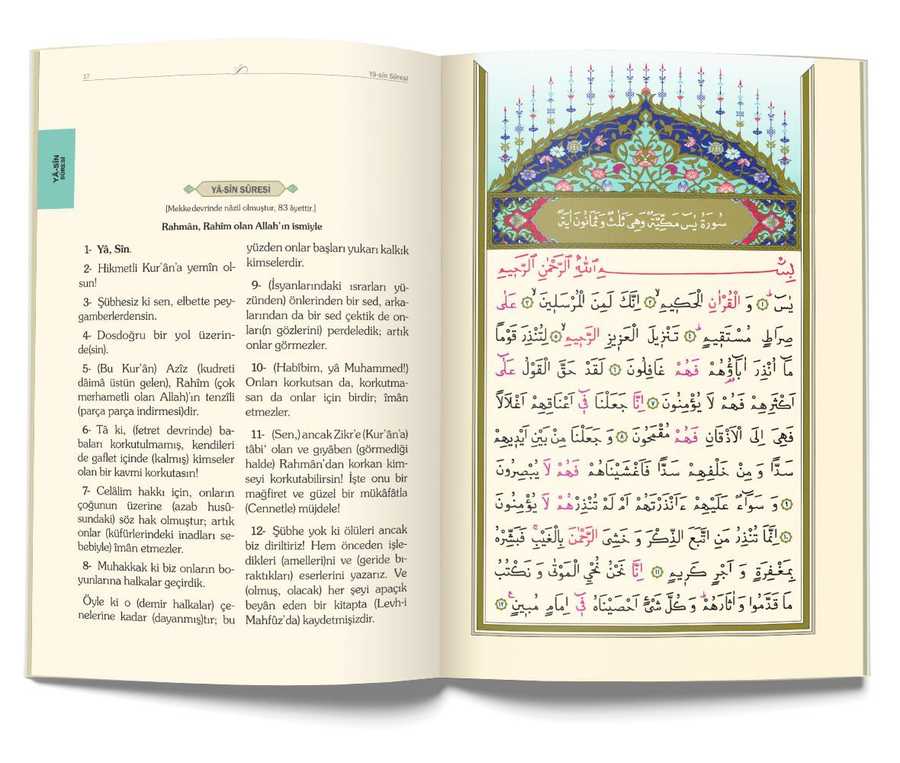 17
Yâ-sîn Sûresi
YÂ-SÎN
SÛRESİ
YÂ-SÎN SÛRESİ
[Mekke devrinde nâzil olmuştur, 83 âyettir.]
Rahmân, Rahîm olan Allah'ın ismiyle
1- Yâ, Sîn.
2- Hikmetli Kur'ân'a yemîn ol-
sun!
3- Şübhesiz ki sen, elbette pey-
gamberlerdensin.
4- Dosdoğru bir yol üzerin-
de(sin).
5- (Bu Kur'ân) Azîz (kudreti
dâimâ üstün gelen), Rahîm (çok
merhametli olan Allah)'ın tenzîli
(parça parça indirmesi)dir.
6- Tâ ki, (fetret devrinde) ba-
baları korkutulmamış, kendileri
de gaflet içinde (kalmış) kimseler
olan bir kavmi korkutasın!
7- Celâlim hakkı için, onların
çoğunun üzerine (azab husû-
sundaki) söz hak olmuştur; artık
onlar (küfürlerindeki inadları se-
bebiyle) îmân etmezler.
8- Muhakkak ki biz onların bo-
yunlarına halkalar geçirdik.
Öyle ki o (demir halkalar) çe-
nelerine kadar (dayanmış)tır; bu
yüzden onlar başları yukarı kalkık
kimselerdir.
9- (İsyanlarındaki ısrarları yü-
zünden) önlerinden bir sed, arka-
larından da bir sed çektik de on-
ları(n gözlerini) perdeledik; artık
onlar görmezler.
10- (Habîbim, yâ Muhammed!)
Onları korkutsan da, korkutma-
san da onlar için birdir; îmân
etmezler.
11- (Sen,) ancak Zikr'e (Kur'ân'a)
tâbi' olan ve gıyâben (görmediği
halde) Rahmân'dan korkan kim-
seyi korkutabilirsin! İşte onu bir
mağfiret ve güzel bir mükâfâtla
(Cennetle) müjdele!
12- Şübhe yok ki ölüleri ancak
biz diriltiriz! Hem önceden işle-
dikleri (amelleri)ni ve (geride bı-
raktıkları) eserlerini yazarız. Ve
(olmuş, olacak) her şeyi apaçık
beyân eden bir kitapta (Levh-i
Mahfûz'da) kaydetmişizdir.
سُورَةُ يٰسٓ مَكِّيَّةٌ وَهِيَ ثَلٰثٌ وَثَمَانُونَ اٰيَةً
بِسْمِ اللّٰهِ الرَّحْمٰنِ الرَّحِيمِ
يٰسٓ ﴿١﴾ وَ الْقُرْاٰنِ الْحَكِيمِ ﴿٢﴾ اِنَّكَ لَمِنَ الْمُرْسَلِينَ ﴿٣﴾ عَلٰى
صِرَاطٍ مُسْتَقِيمٍ ﴿٤﴾ تَنْزِيلَ الْعَزِيزِ الرَّحِيمِ ﴿٥﴾ لِتُنْذِرَ قَوْمًا
مَٓا اُنْذِرَ اٰبَٓاؤُهُمْ فَهُمْ غَافِلُونَ ﴿٦﴾ لَقَدْ حَقَّ الْقَوْلُ عَلٰٓى
اَكْثَرِهِمْ فَهُمْ لَا يُؤْمِنُونَ ﴿٧﴾ اِنَّا جَعَلْنَا فٖٓى اَعْنَاقِهِمْ اَغْلَالًا
فَهِيَ اِلَى الْاَذْقَانِ فَهُمْ مُقْمَحُونَ ﴿٨﴾ وَ جَعَلْنَا مِنْ بَيْنِ اَيْدِيهِمْ
سَدًّا وَ مِنْ خَلْفِهِمْ سَدًّا فَاَغْشَيْنَاهُمْ فَهُمْ لَا يُبْصِرُونَ
﴿٩﴾ وَ سَوَٓاءٌ عَلَيْهِمْ ءَاَنْذَرْتَهُمْ اَمْ لَمْ تُنْذِرْهُمْ لَا يُؤْمِنُونَ
﴿١٠﴾ اِنَّمَا تُنْذِرُ مَنِ اتَّبَعَ الذِّكْرَ وَ خَشِيَ الرَّحْمٰنَ بِالْغَيْبِۚ فَبَشِّرْهُ
بِمَغْفِرَةٍ وَ اَجْرٍ كَرِيمٍ ﴿١١﴾ اِنَّا نَحْنُ نُحْيِ الْمَوْتٰى وَ نَكْتُبُ
مَا قَدَّمُوا وَ اٰثَارَهُمْۜ وَ كُلَّ شَيْءٍ اَحْصَيْنَاهُ فٖٓى اِمَامٍ مُبِينٍ ﴿١٢﴾